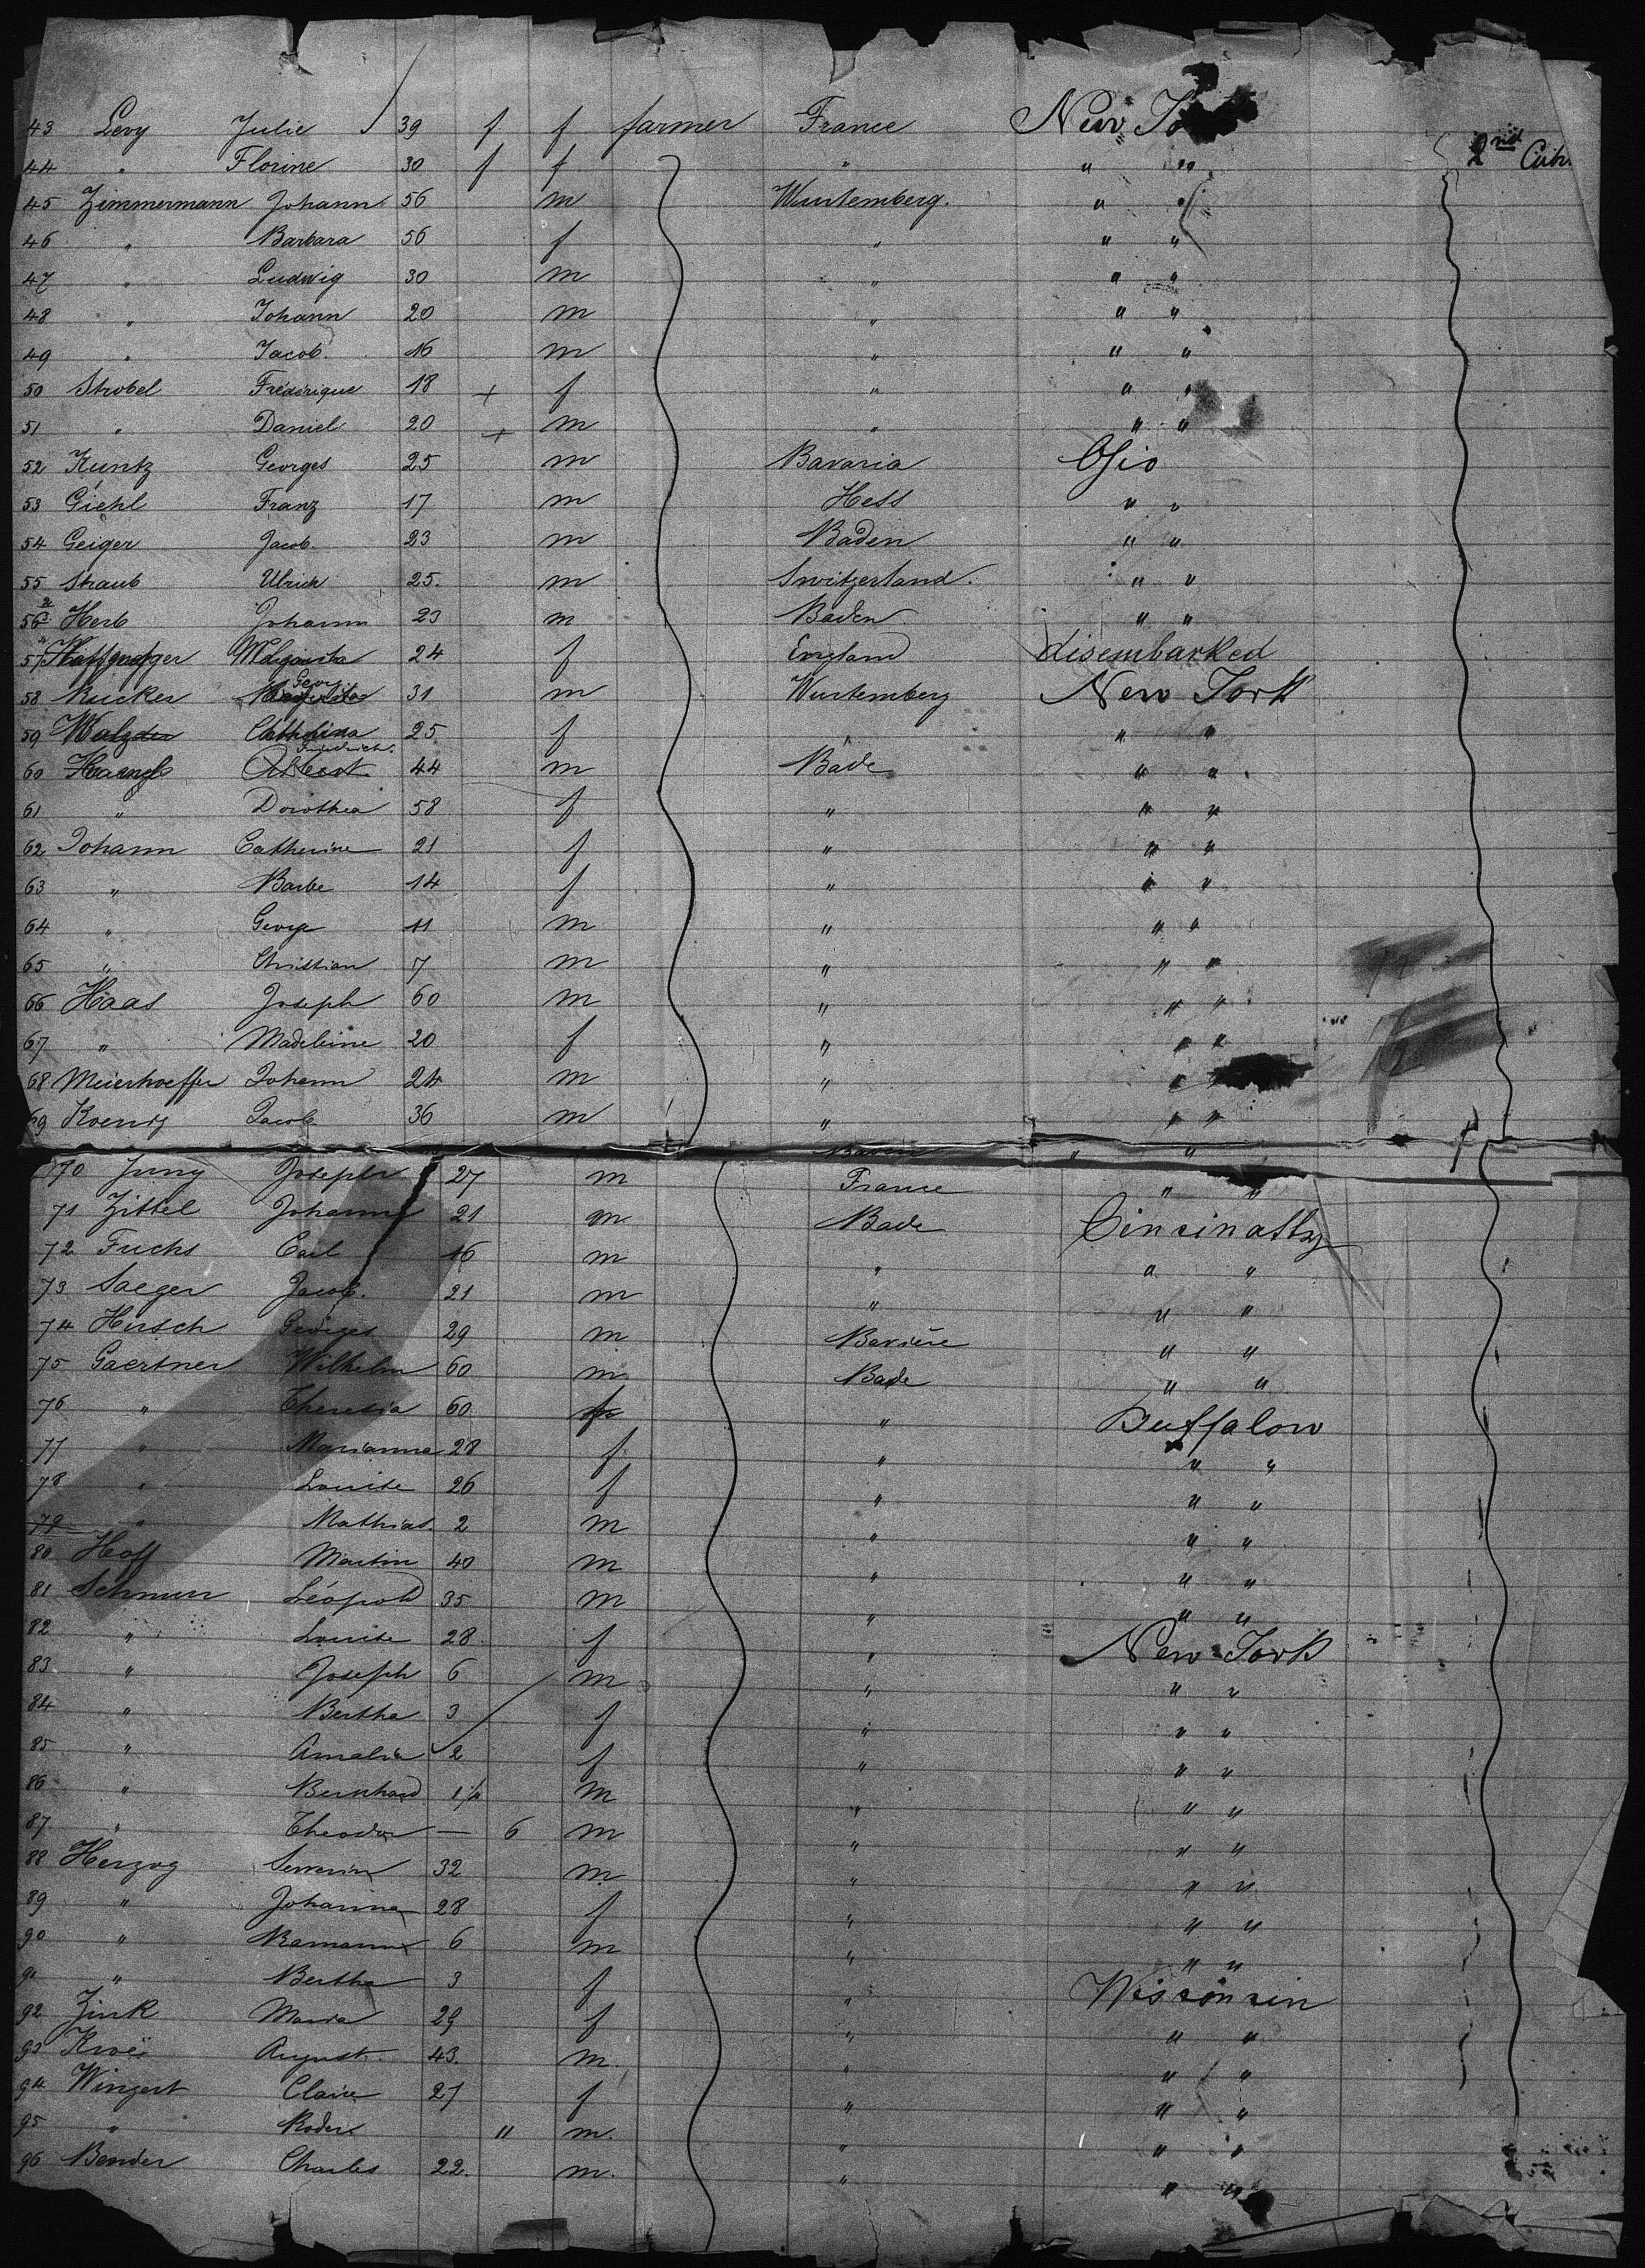 43 Levy Julie 39 f f farmer France New Yo
44 " Florine 30 f f " " " 2nd Cab
45 Zimmermann Johann 56 m Wurtemberg. " "
46 " Barbara 56 f " " "
47 " Ludwig 30 m " " "
48 " Johann 20 m " " "
49 " Jacob. 16 m " " "
50 Strobel Frédérique 18 + f " " "
51 " Daniel 20 + m " " "
52 Kuntz Georges 25 m Bavaria Ohio
53 Giehl Franz 17 m Hess " "
54 Geiger Jacob. 23 m Baden " "
55 Straub Ulrich 25. m Switzerland. " "
56 Herb Johann 23 m Baden " "
57 24 f England disembarked
58 Rucker Georg 31 m Wurtemberg New York
59 Catharina 25 f " " "
60 Friedrich. 44 m Bade " "
61 " Dorothea 58 f " " "
62 Johann Catherine 21 f " " "
63 " Barbe 14 f " " "
64 " Georg 11 m " " "
65 " Christian 7 m " " "
66 Haas Joseph 60 m " " "
67 " Madeleine 20 f " " "
68 Meierhoeffer Johann 24 m " " "
69 Koenig Jacob 36 m " " "
Baden " "
70 Jung Joseph 27 m France " "
71 Zittel Johann 21 m Bade Cincinatty
72 Fuchs Carl 16 m " " "
73 Saeger Jacob. 21 m " " "
74 Hirsch Georges 29 m Bavière " "
75 Gaertner Wilhelm 60 m Bade " "
76 " Theresia 60 f " Buffalow
77 " Marianna 28 f " " "
78 " Louise 26 f " " "
79 " Mathias. 2 m " " "
80 Hoff Martin 40 m " " "
81 Schnurr Léopold 35 m " " "
82 " Louise 28 f " New York
83 " Joseph 6 m " " "
84 " Bertha 3 f " " "
85 " Amalia 2 f " " "
86 " Bernhard m " " "
87 " Theodor — 6 m " " "
88 Herzog Severin 32 m " " "
89 " Johanna 28 f " " "
90 " 6 m " " "
91 " Bertha 3 f " Wisconsin
92 Zink Maria 29 f " " "
93 August. 43. m. " " "
94 Wingert Claire 27 f " " "
95 " " m. " " "
96 Bender Charles 22. m. " " "